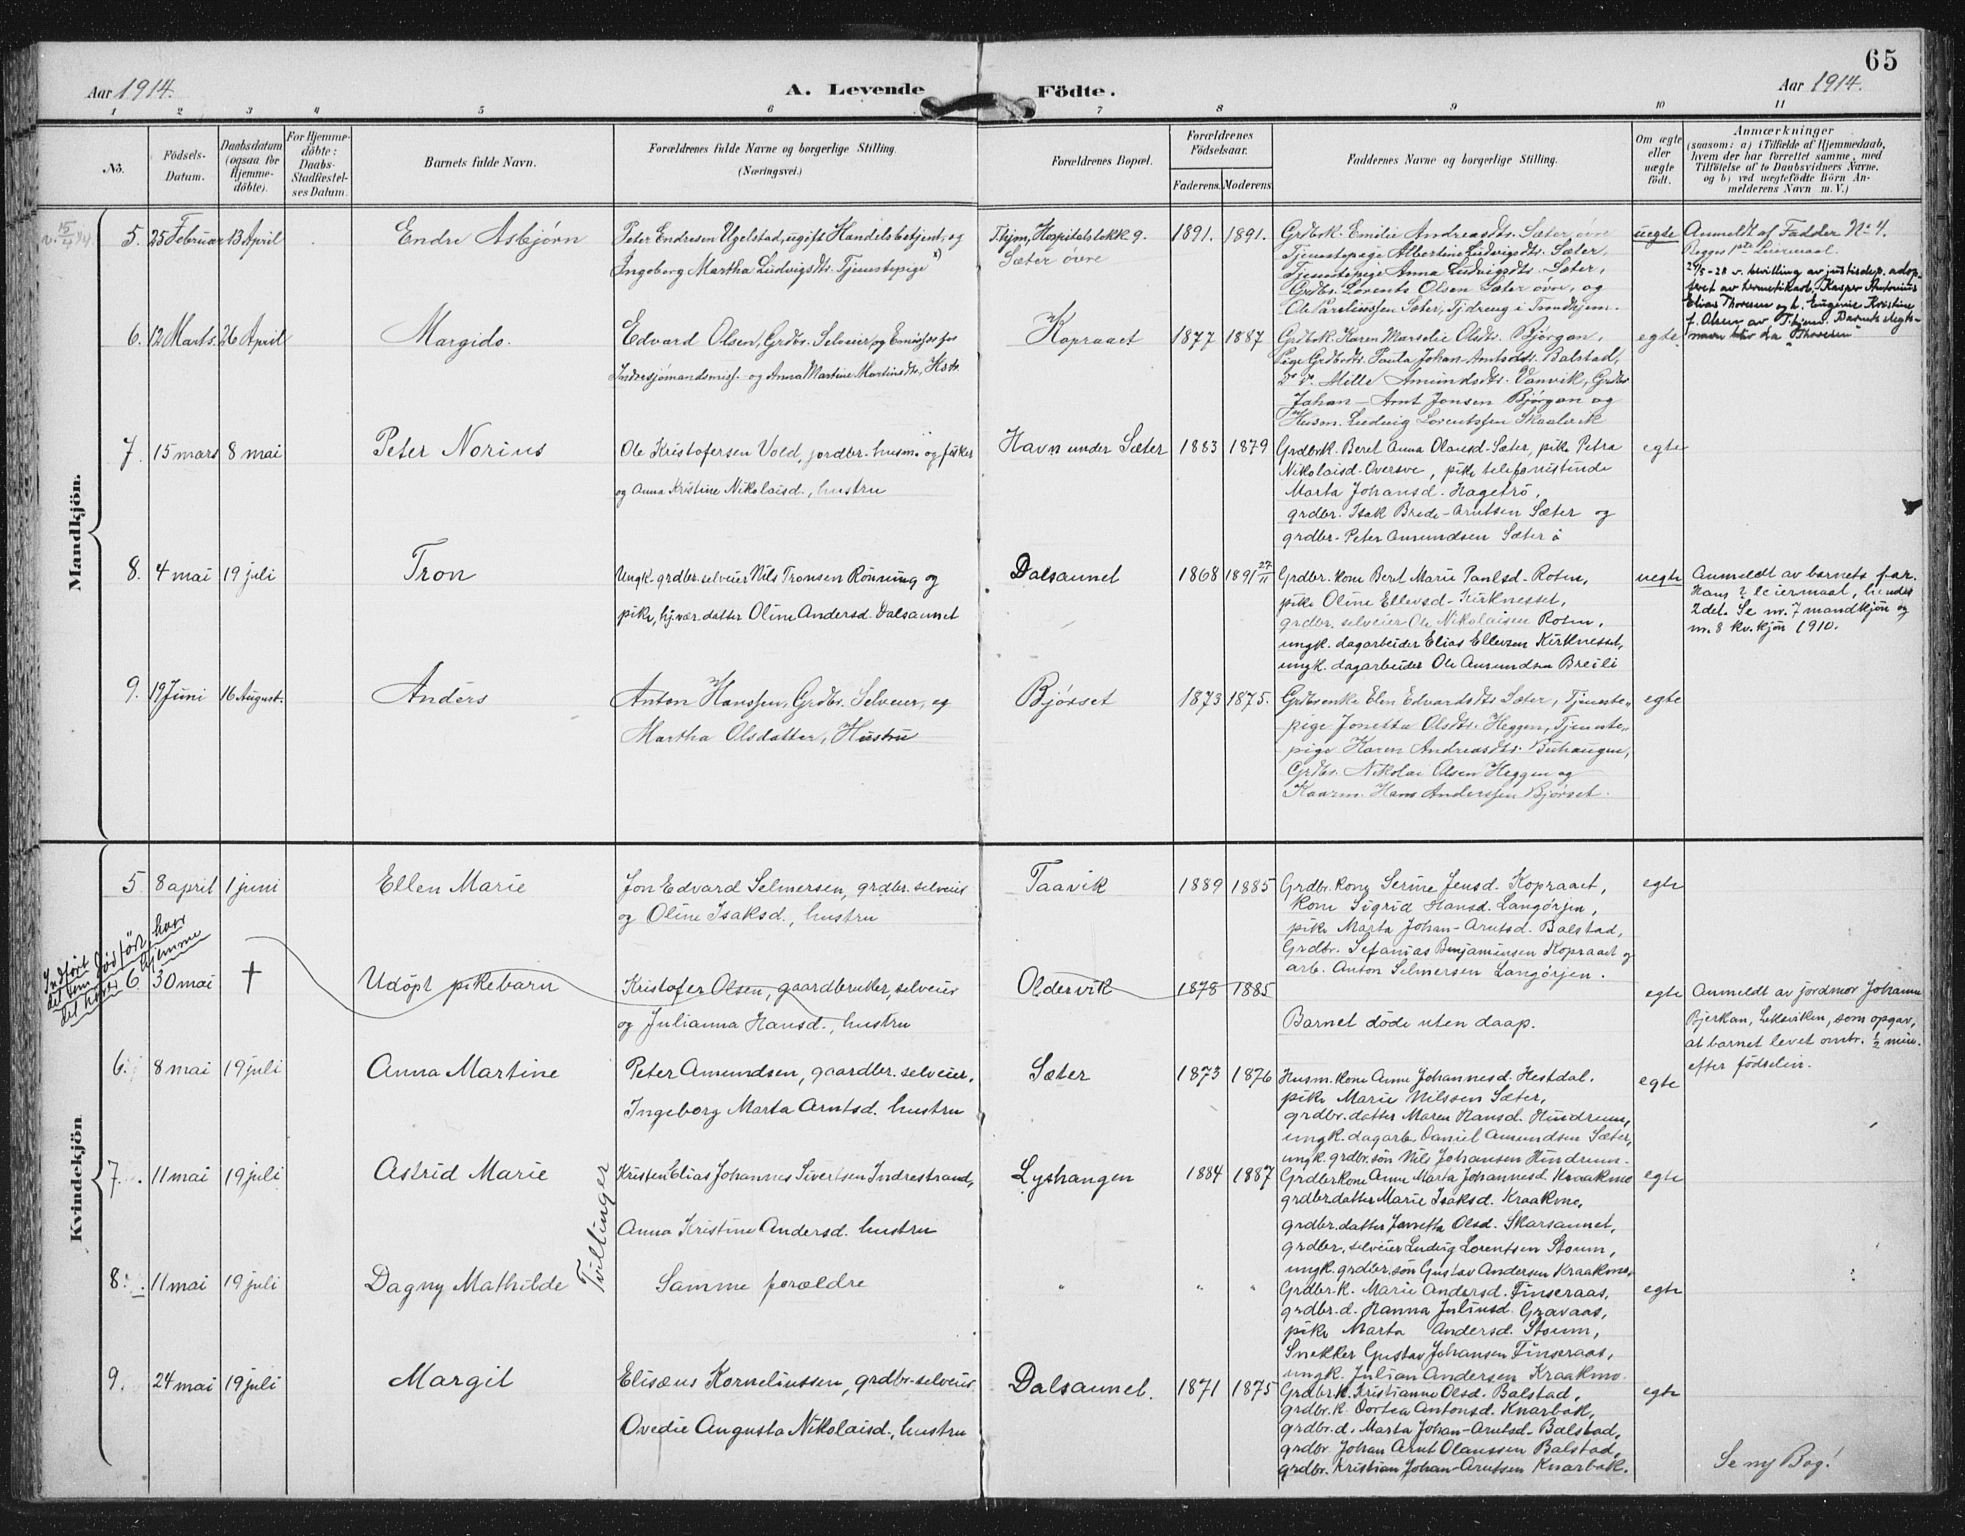 65
Aar 1914.
A. Levende Födte.
Aar 1914.
1 2 3 4 5 6 7 8 9 10 11
No.
Födsels-Datum.
Daabsdatum (ogsaa for Hjemmedöbte).
For Hjemmedöbte: Daabs-Stadfestelses Datum.
Barnets fulde Navn.
Forældrenes fulde Navne og borgerlige Stilling. (Næringsvei.)
Forældrenes Bopæl.
Forældrenes Födselsaar.
Faderens. Moderens.
Faddernes Navne og borgerlige Stilling.
Om ægte eller uægte födt.
Anmærkninger
(saasom: a) i Tilfælde af Hjemmedaab,
hvem der har forrettet samme, med
Tilföielse af to Daabsvidners Navne.
og b) ved uægtefödte Börn An-
melderens Navn m. V.)
Mandkjön.
5. 25 Februar 13 April
Endre Asbjørn
Peter Endresen Ugelstad, ugift Handelsbetjent, og
Ingeborg Martha Ludvigsdtr. Tjenestepige x)
Thjm, Hospitalsløkk. 9.
Sæter øvre
1891. 1891.
Grdbrk. Emilie Andreasdtr. Sæter, øvre
Tjenestepige Albertine Ludvigsdtr. Sæter,
Tjenestepige Anna Ludvigsdtr. Sæter,
Grdbr. Lorents Olsen Sæter øvre, og
uegte
Anmeldt af Fadder No. 4.
Begges 1ste Leiermaal.
6. 12 Marts. 26 April
Margido.
Edvard Olsen, Grdbr. Selveier og Emissær for
Indresjømandsmiss. og Anna Martine Martinsdtr., Hstr.
Kopraaet
1877 1887
Grdbrk. Karen Marselie Olsdtr. Bjørgan,
Pige Grdbrdtr. Paula Johan-Arntsdtr. Balstad,
Do. do. Mille Amundsdtr. Vanvik, Grdbr.
Johan-Arnt Jonsen Bjørgan og
Husm. Ludvig Lorentssen Skaalvik
egte
7. 15 mars 8 mai
Peter Norius
Ole Kristofersen Vold, jordbr. husm. og fisker
og Anna Kristine Nikolaisd., hustru
Havn under Sæter
1883 1879
Grdbrk. Beret Anna Olausd. Sæter, pike Petra
Nikolaisd. Oversve, pike telefonistinde
Marta Johansd. Hagetrø,
grdbr. Isak Brede-Arntsen Sæter og
grdbr. Peter Amundsen Sæter ø
egte
8. 4 mai 19 juli
Tron
Ungk. grdbr. selveier Nils Tronsen Rönning og
pike, hj.vær. datter Oline Andersd. Dalsaunet
Dalsaunet
1868 1891 27/11
Grdbr. kone Beret Marie Paulsd. Roten,
pike Oline Ellevsd. Kirknesset,
grdbr. selveier Ole Nikolaisen Roten,
ungk. dagarbeider Elias Ellevsen Kirknesset,
ungk. dagarbeider Ole Amundsen Breili
uegte
Anmeldt av barnets far.
Hans 2 leiermaal, hendes
2det. Se nr. 7 mandkjön og
nr. 8 kv.kjön 1910.
9. 19 Juni 16 August.
Anders
Anton Hanssen, Grdbr. Selveier, og
Martha Olsdatter, Hustru
Bjørset
1873 1875.
Grdbrenke Elen Edvardsdtr. Sæter, Tjeneste-
pige Jonetta Olsdtr. Heggen, Tjeneste-
pige Karen Andreasdtr. Buhaugen,
Grdbr. Nikolai Olsen Heggen og
Kaarm. Hans Anderssen Bjørset.
egte
Kvindekjön
5. 8 april 1 juni
Ellen Marie
Jon Edvard Selmersen, grdbr. selveier
og Oline Isaksd., hustru
Taavik
1889 1885
Grdbr. kone Serine Jensd. Kopraaet,
kone Sigrid Hansd. Langörjen,
pike Marta Johan-Arntsd. Balstad,
Grdbr. Sefanias Benjaminsen Kopraaet og
arb. Anton Selmersen Langörjen.
egte
6 30 mai †
Udöpt pikebarn
Kristofer Olsen, gaardbruker, selveier
og Julianna Hansd., hustru
Oldervik
1878 1885
Barnet döde uten daap.
egte
Anmeldt av jordmor Johanna
Bjerkan, Leksviken, som opgav,
at barnet levet omtr. 1/2 min.
efter födselen.
6. 8 mai 19 juli
Anna Martine
Peter Amundsen, gaardbr. selveier,
Ingeborg Marta Arntsd. hustru
Sæter
1873 1876
Husm. kone Anne Johannesd. Hestdal,
pike Marie Nilssen Sæter,
grdbr. datter Maren Hansd. Hindrum,
ungk. dagarb. Daniel Amundsen Sæter,
ungk. grdbr. sön Nils Johansen Hindrum.
egte
7. 11 mai 19 juli
Astrid Marie
Tvillinger
Kristen Elias Johannes Sivertsen Indrestrand,
Anna Kristine Andersd. hustru
Lyshaugen
1884 1887
Grdbrkone Anne Marta Johannesd. Kraakmo
grdbr.datter Marie Isaksd. Kraakmo,
grdbr.datter Jonetta Olsd. Skarsaunet,
grdbr. selveier Ludvig Lorentsen Stoum,
ungk. grdbr. sön Gustav Andersen Kraakmo.
egte
8. 11 mai 19 juli
Dagny Mathilde
Samme forældre
" " "
Grdbr.k. Marie Andersd. Finseraas,
grdbr. d. Hanna Juliusd. Gravaas,
pike Marta Andersd. Stoum,
Snekker Gustav Johansen Finseraas,
ungk. Julian Andersen Kraakmo.
egte
9. 24 mai 19 juli
Margit
Elisæus Korneliussen, grdbr. selveier
Ovedie Augusta Nikolaisd., hustru
Dalsaunet.
1871 1875
Grdbr.k. Kristianne Olsd. Balstad,
grdbr. k. Dortea Antonsd. Knarbak,
grdbr. d. Marta Johan-Arntsd. Balstad,
grdbr. Johan Arnt Olaussen Balstad,
grdbr. Kristian Johan-Arntsen Knarbak.
egte
Se ny Bog!